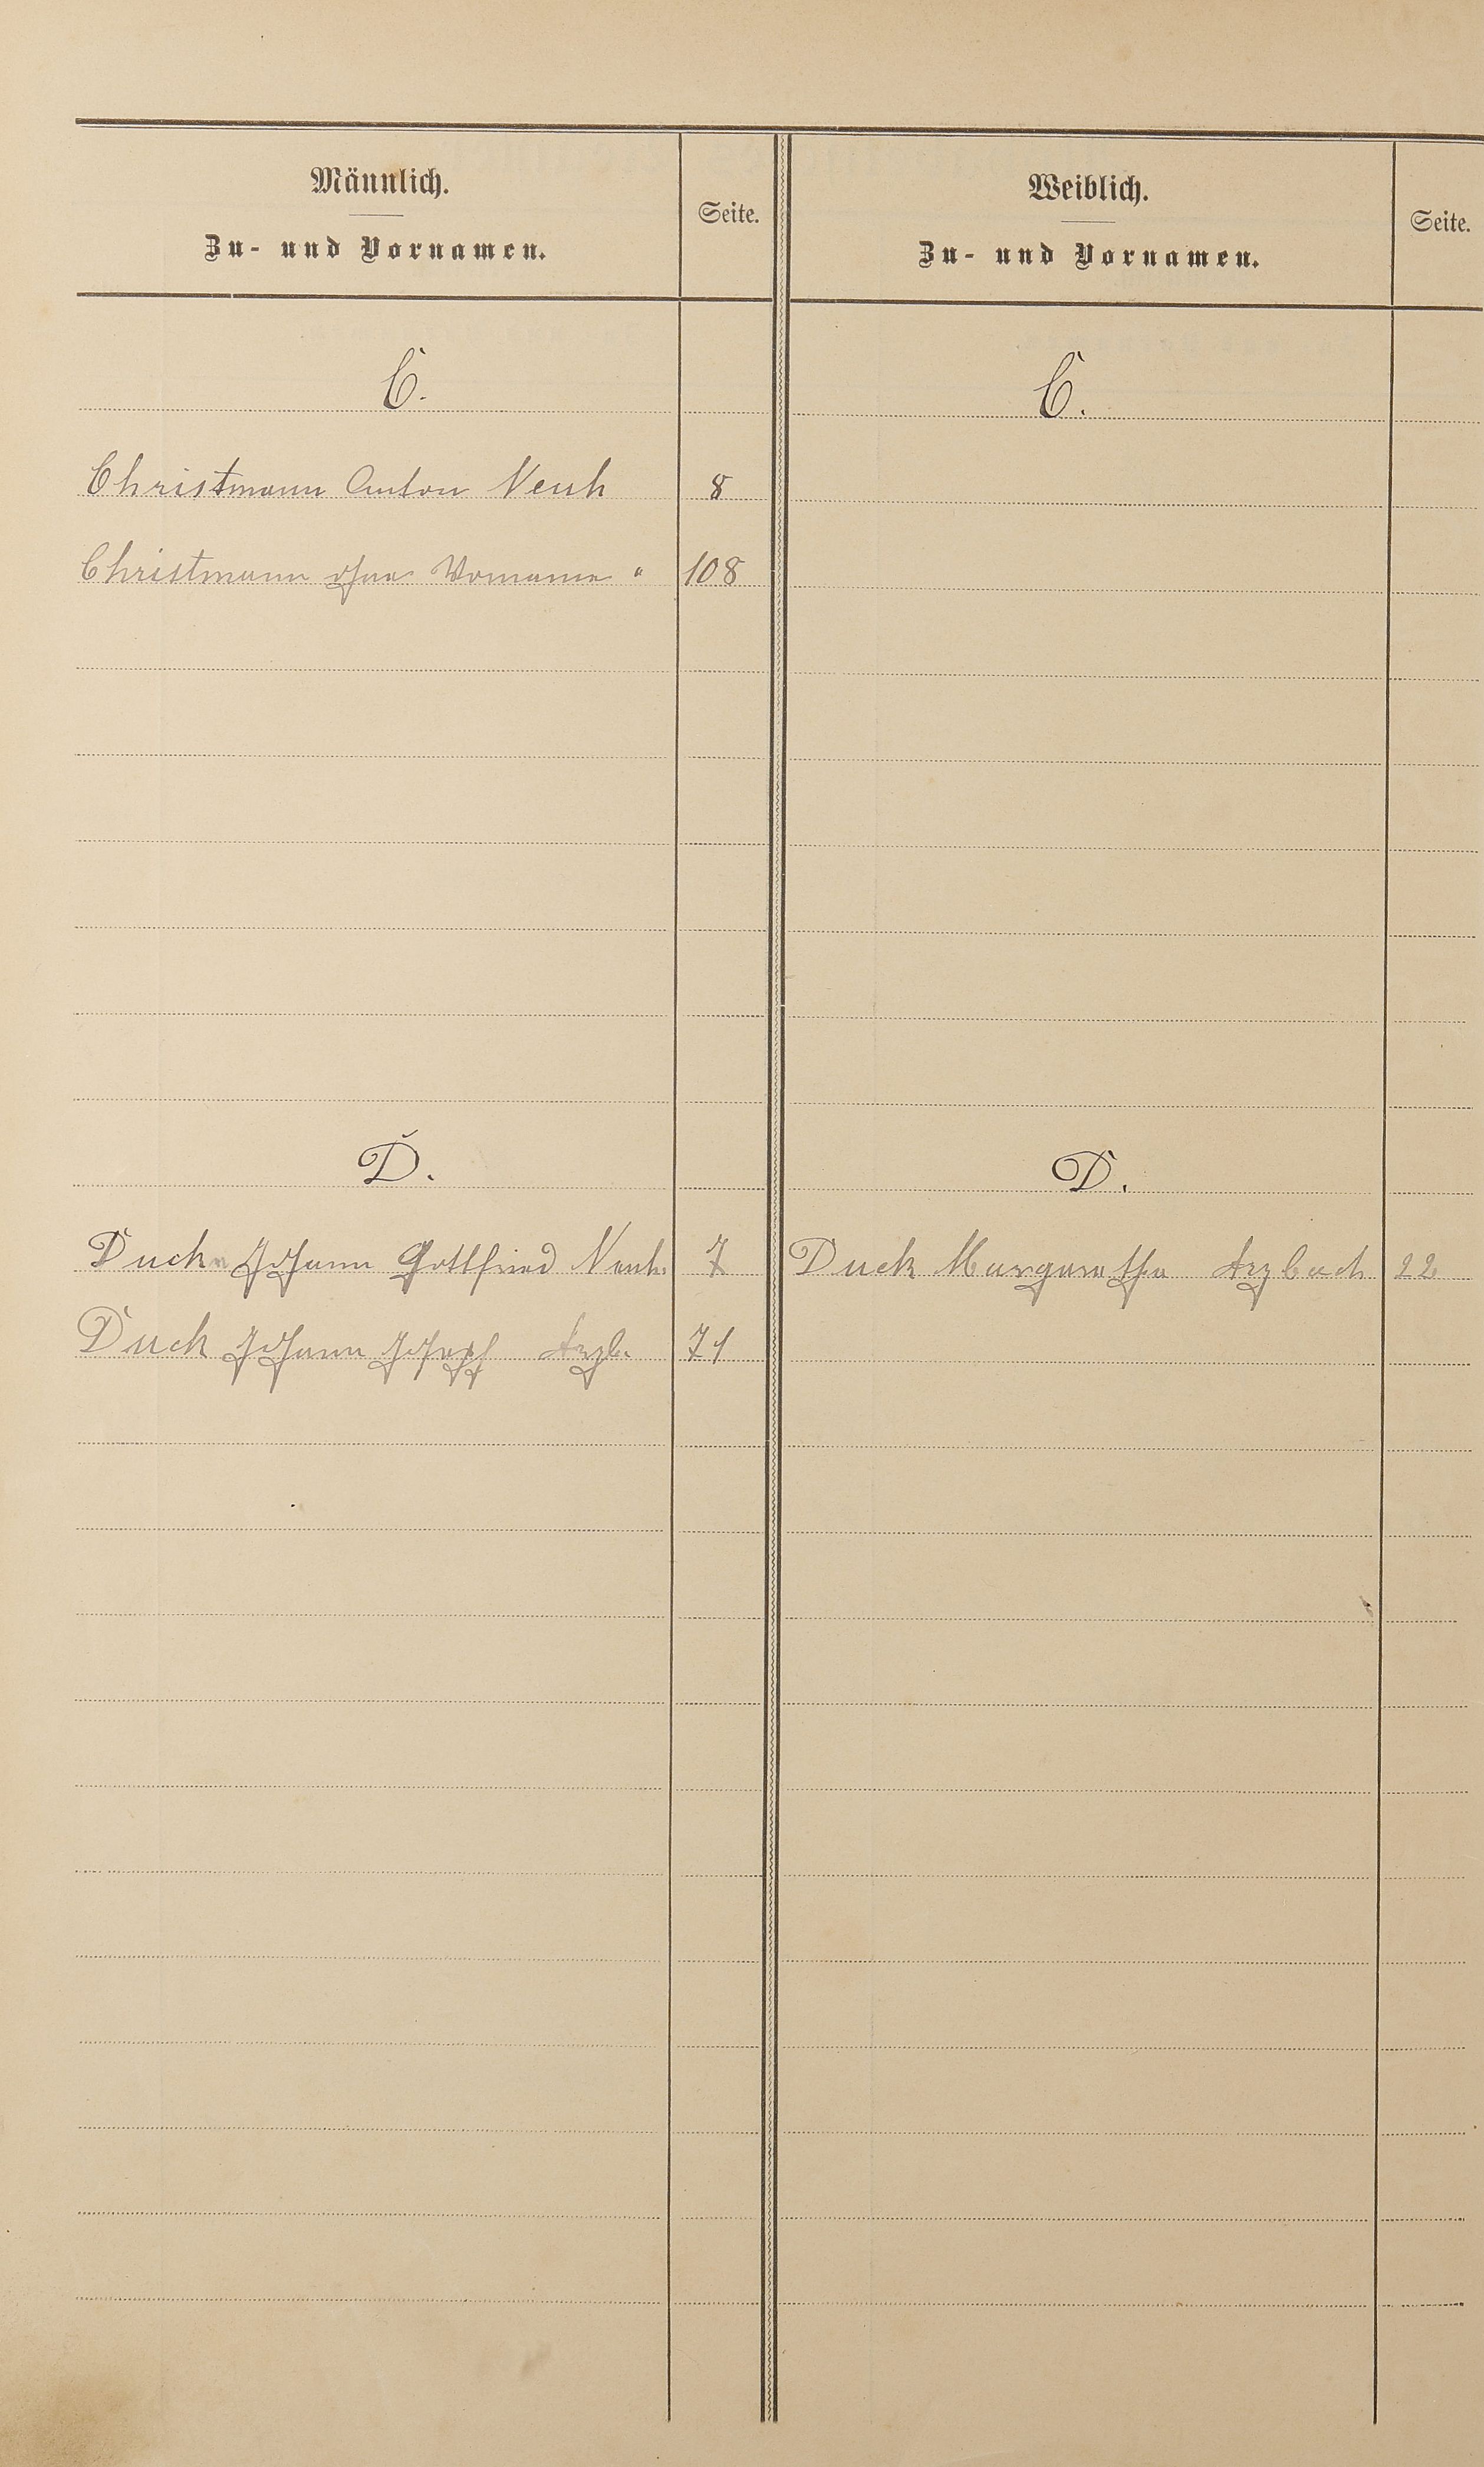 Männlich.
Zu- und Vornamen.
Seite.
Weiblich.
Zu- und Vornamen.
Seite.
C.
C.
Christmann Anton Neuh 8
Christmann ohne Vorname " 108
D.
D.
Duck Johann Gottfried Neuh. 7
Duck Margaretha Arzbach 22
Duck Johann Joseph Arzb. 71